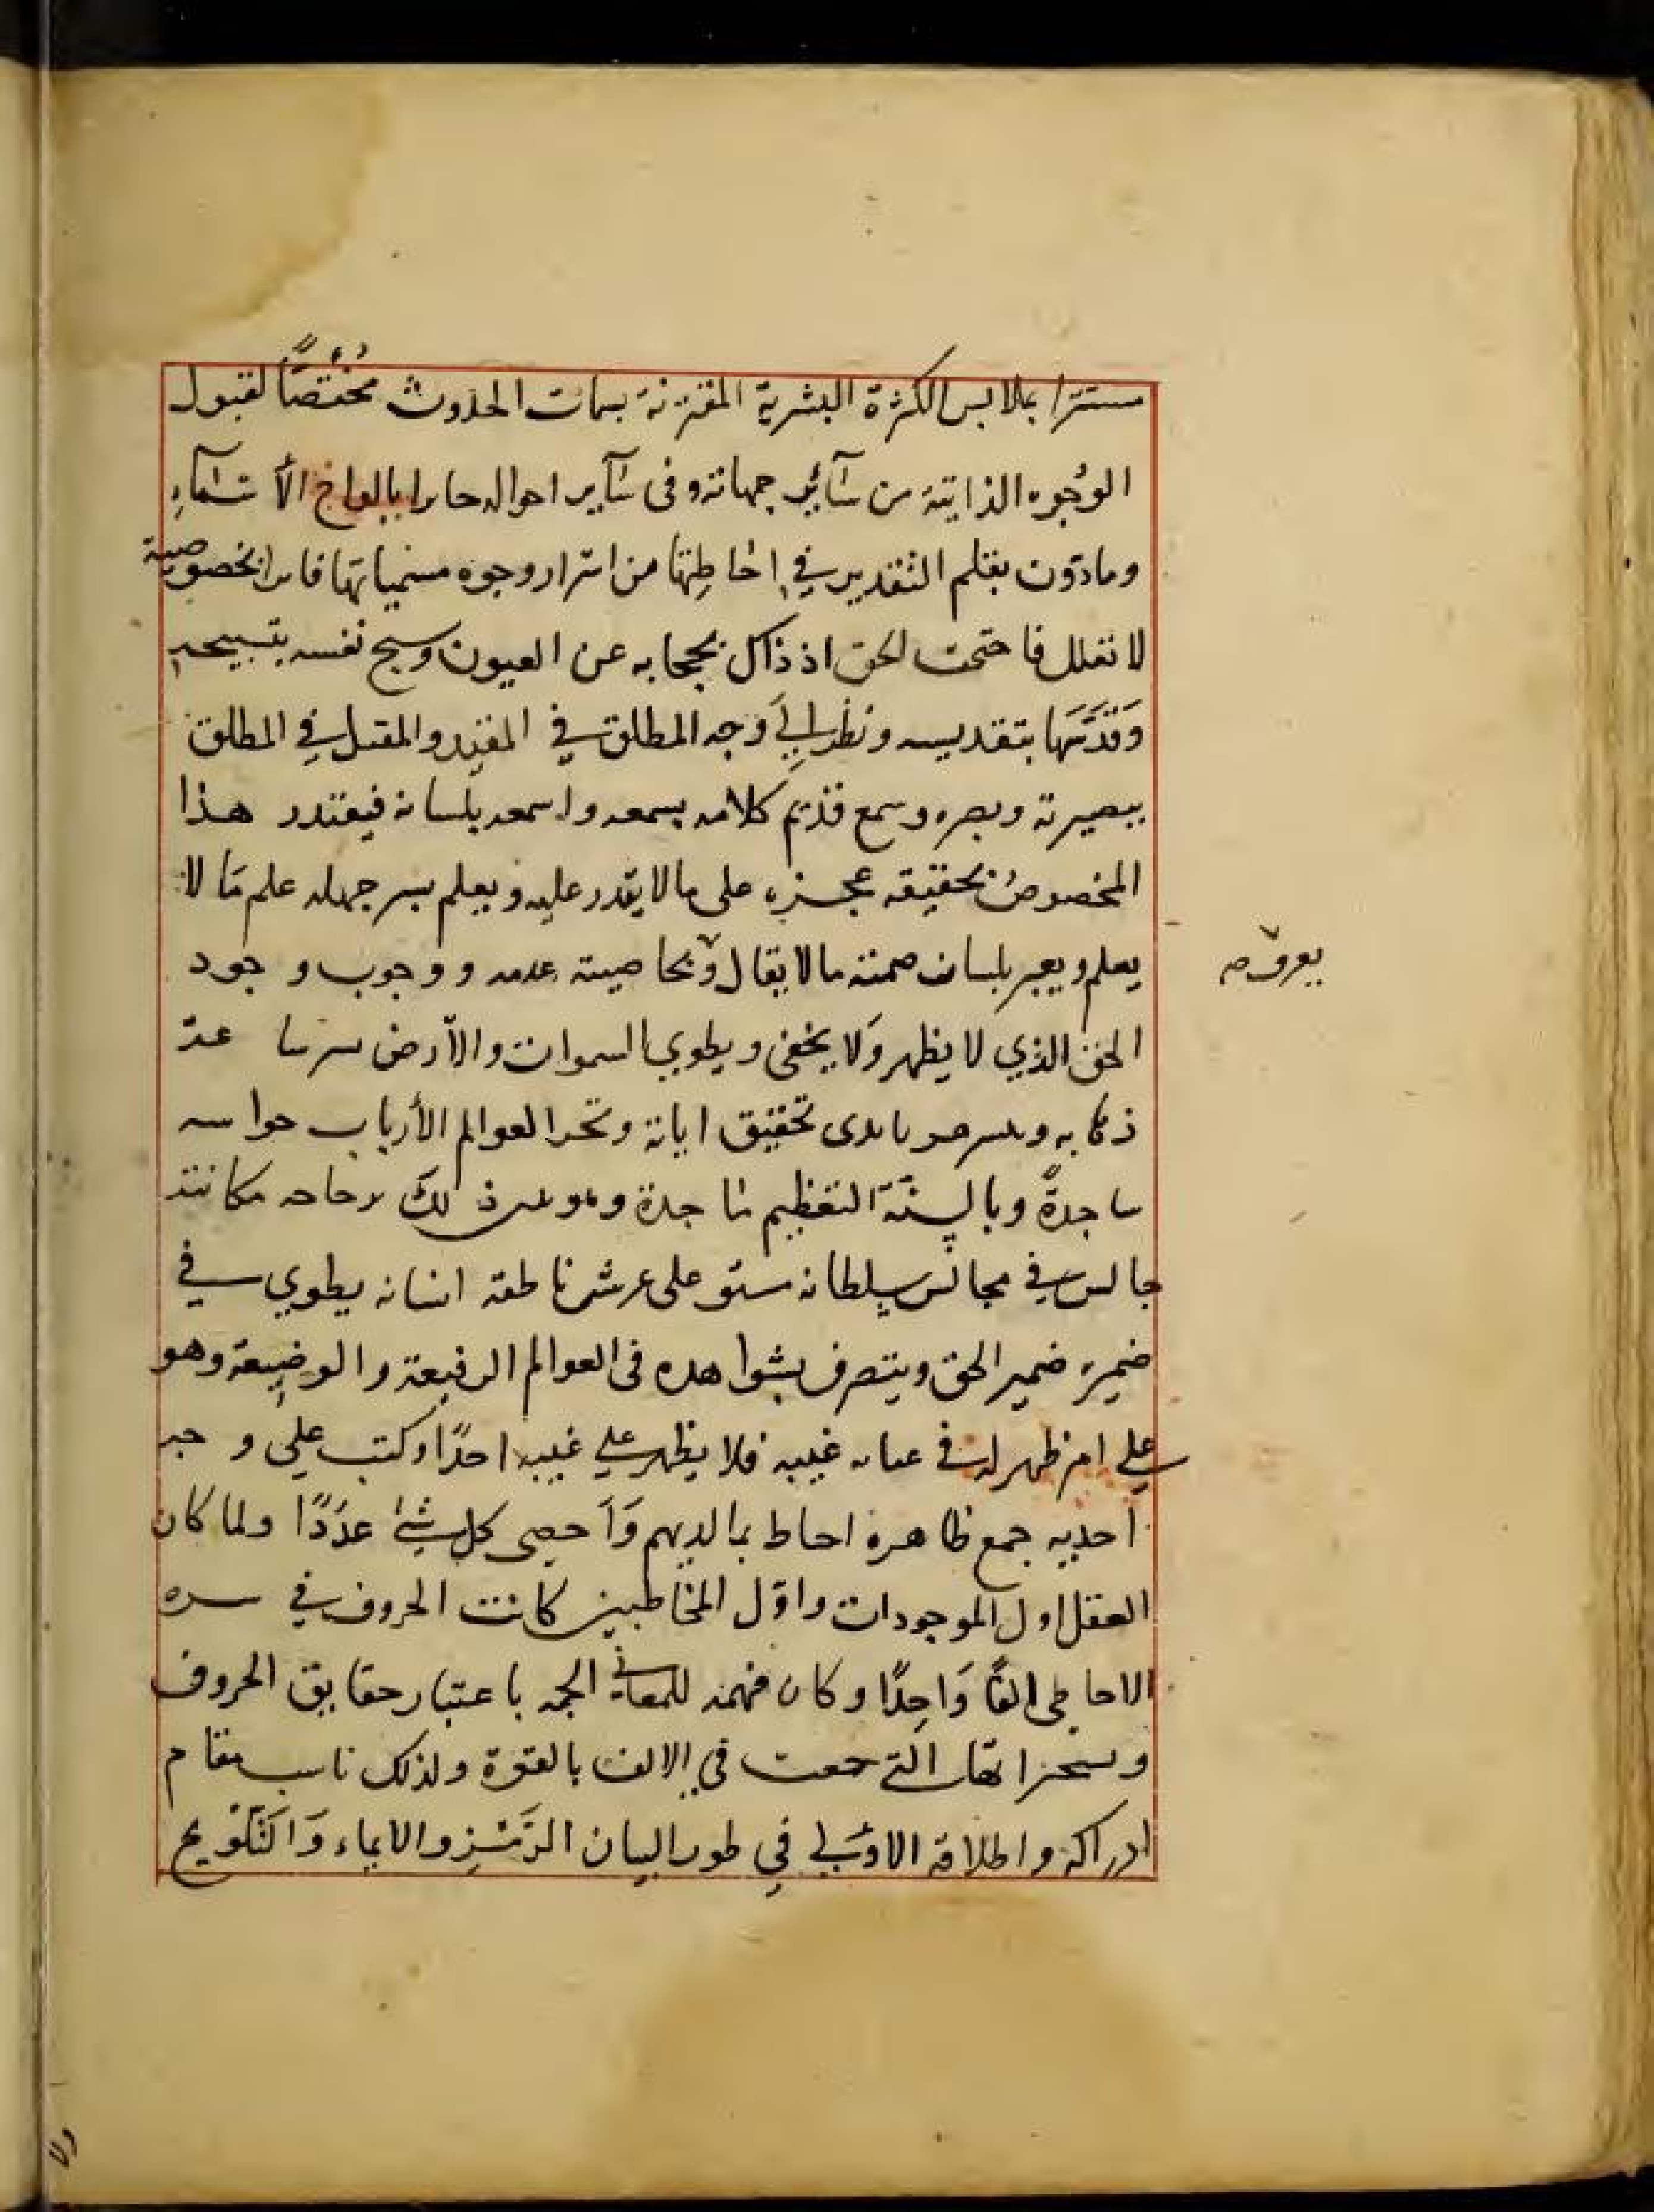 مستترا بملابس الكثرة البشرية المقترنة بسمات الحدوث مختصًّا لقبول
الوجوه الذاتية من سآئر جهاته وفى سآير احواله بالواح الأسمآء
وما دون بقلم التقدير في احاطتها من اسرار وجوه مسمياتها فان الخصوصية
لا تعلل فاحتجت الحق اذ ذاك بحجابه عن العيون وسبح نفسه بتسبيحه
وَقَدَّسَهَا بتقديسه ونظر إلى وجه المطلق في المقيد والمقبل في المطلق
ببصيرته وبصره وسمع قديم كلامه بسمعه واسمعه بلسانه فيقتدر هذا
المخصوص بحقيقه عجزه على ما لا يقدر عليه ويعلم بسر جهله علم مَا لا
يعلم ويعبر بلسان صمته ما لا يقال وبخاصيته عدمه ووجوب وجود
يعرف صـ
الحق الذي لا يظهر وَلا يخفى ويطوي السموات والأرض
تحقيق اياته العوالم الأرباب حواسه
ساجدةً وبالسنّة التعظيم ماجدة ذلك مكانته
جالس في مجالس سلطانه مستو على عرش ناطقه انسانه يطوي في
ضميره ضمير الحق ويتصرف بشواهده فى العوالم الرفيعة والوضيعة وهو
على امر ظهر له في غيبه فلا يظهر على غيبه احدًا وكتب على وجه
احديه جمع ظاهره احاط بما لديهم وَأَحصى كل شئ عدَدًا ولما كان
العقل اول الموجودات واوّل المخاطبين كانت الحروف في سره
الاحاطى الفًا وَاحِدًا وكان فهمه للمعانى الجمه باعتبار حقايق الحروف
التي جمعت في الالف بالقوة ولذلك ناسب مقام
ادراكه واطلاقه الاوّلى في طور البيان الرَّمْز والايماء وَالتَّلْوِيح
ولا